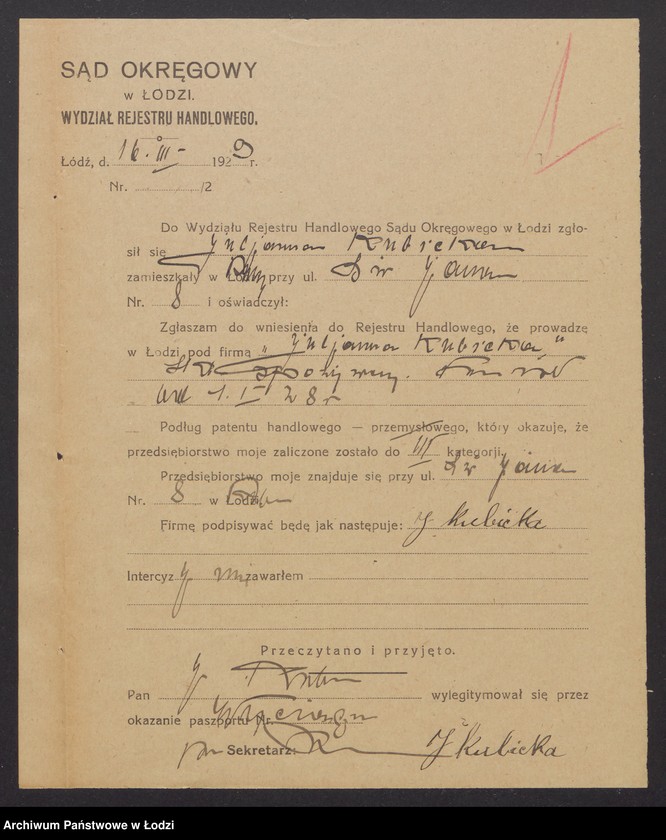 SĄD OKRĘGOWY
w ŁODZI.
WYDZIAŁ REJESTRU HANDLOWEGO.
Łódź, d. 16. III 1929 r.
Nr. /2
Do Wydziału Rejestru Handlowego Sądu Okręgowego w Łodzi zgło-
sił się Juljanna Kubicka
zamieszkały w Łodzi przy ul. Św Jana
Nr. 8 i oświadczył:
Zgłaszam do wniesienia do Rejestru Handlowego, że prowadzę
w Łodzi pod firmą „Juljanna Kubicka"
od 1. I 28 r
Podług patentu handlowego — przemysłowego, który okazuje, że
przedsiębiorstwo moje zaliczone zostało do III kategorji.
Przedsiębiorstwo moje znajduje się przy ul. Św Jana
Nr. 8 w Łodzi
Firmę podpisywać będę jak następuje: J Kubicka
Intercyzy nie zawarłem
Przeczytano i przyjęto.
Pan wylegitymował się przez
okazanie paszportu Nr.
Sekretarz: J Kubicka
Archiwum Państwowe w Łodzi